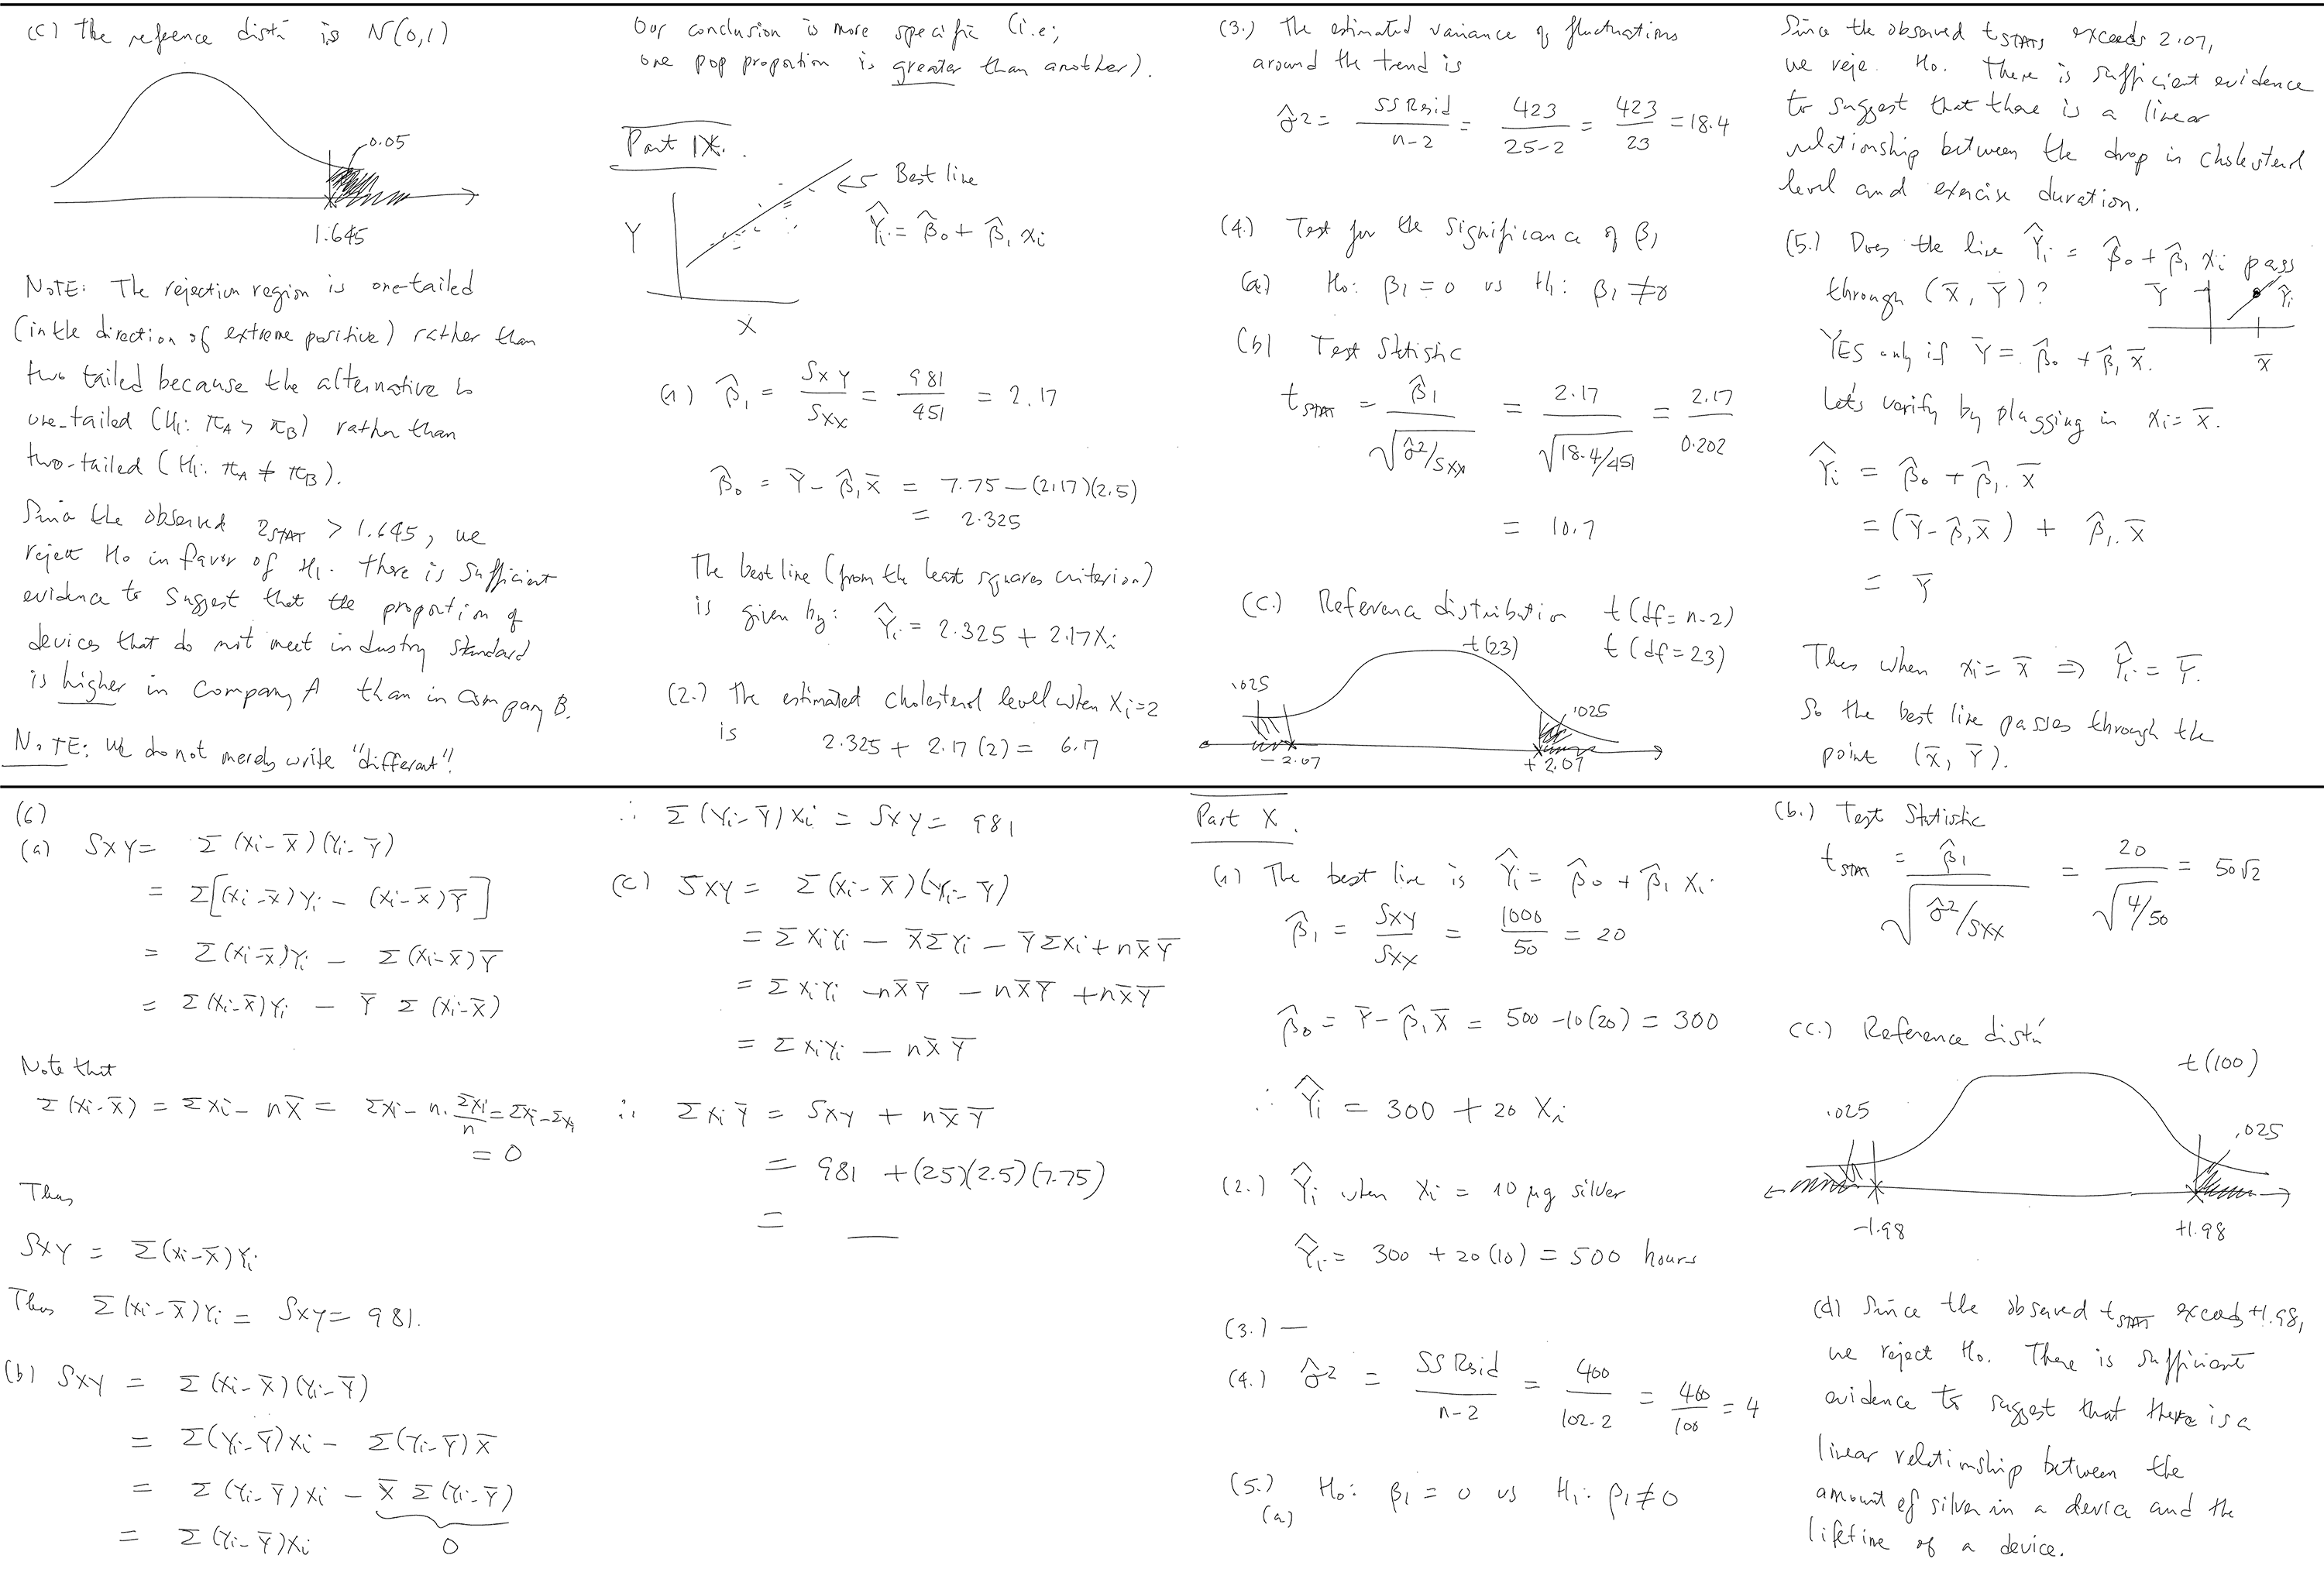 (c) The reference distn is N(0,1)
0.05
1.645
NOTE: The rejection region is one-tailed
(in the direction of extreme positive) rather than
two tailed because the alternative is
one-tailed (H1: πA > πB) rather than
two-tailed (H1: πA ≠ πB).
Since the observed zSTAT > 1.645, we
reject Ho in favor of H1. There is sufficient
evidence to suggest that the proportion of
devices that do not meet industry standard
is higher in Company A than in Company B.
NOTE: We do not merely write "different"!
Our conclusion is more specific (i.e;
one pop proportion is greater than another).
Part IX.
Best line
Y
Ŷi = β̂0 + β̂1 xi
X
(1) β̂1 = SXY/SXX = 981/451 = 2.17
β̂0 = Ȳ - β̂1X̄ = 7.75 - (2.17)(2.5)
= 2.325
The best line (from the least squares criterion)
is given by: Ŷi = 2.325 + 2.17Xi
(2.) The estimated cholesterol level when Xi=2
is 2.325 + 2.17(2) = 6.7
(3.) The estimated variance of fluctuations
around the trend is
σ̂2 = SSResid/n-2 = 423/25-2 = 423/23 = 18.4
(4.) Test for the significance of β1
(a) Ho: β1 = 0 vs H1: β1 ≠ 0
(b) Test Statistic
tSTAT = β̂1/√(σ̂2/SXX) = 2.17/√(18.4/451) = 2.17/0.202
= 10.7
(c.) Reference distribution t(df = n-2)
t(23) t(df=23)
.025
.025
-2.07 +2.07
Since the observed tSTATS exceeds 2.07,
we reje. Ho. There is sufficient evidence
to suggest that there is a linear
relationship between the drop in cholesterol
level and exercise duration.
(5.) Does the line Ŷi = β̂0 + β̂1 xi pass
through (X̄, Ȳ)?
Ȳ Ŷi
X̄
YES only if Ȳ = β̂0 + β̂1 X̄.
Let's verify by plugging in xi = X̄.
Ŷi = β̂0 + β̂1. X̄
= (Ȳ - β̂1X̄) + β̂1. X̄
= Ȳ
Thus when xi = X̄ ⇒ Ŷi = Ȳ.
So the best line passes through the
point (X̄, Ȳ).
(6)
(a) SXY = Σ(Xi - X̄)(Yi - Ȳ)
= Σ[(Xi - X̄)Yi - (Xi - X̄)Ȳ]
= Σ(Xi - X̄)Yi - Σ(Xi - X̄)Ȳ
= Σ(Xi - X̄)Yi - Ȳ Σ(Xi - X̄)
Note that
Σ(Xi - X̄) = ΣXi - nX̄ = ΣXi - n.ΣXi/n = ΣXi - ΣXi
= 0
Thus
SXY = Σ(Xi - X̄)Yi
Thus Σ(Xi - X̄)Yi = SXY = 981.
(b) SXY = Σ(Xi - X̄)(Yi - Ȳ)
= Σ(Yi - Ȳ)Xi - Σ(Yi - Ȳ)X̄
= Σ(Yi - Ȳ)Xi - X̄ Σ(Yi - Ȳ)
= Σ(Yi - Ȳ)Xi 0
∴ Σ(Yi - Ȳ)Xi = SXY = 981
(c) SXY = Σ(Xi - X̄)(Yi - Ȳ)
= ΣXiYi - X̄ΣYi - ȲΣXi + nX̄Ȳ
= ΣXiYi - nX̄Ȳ - nX̄Ȳ + nX̄Ȳ
= ΣXiYi - nX̄Ȳ
∴ ΣXiȲ = SXY + nX̄Ȳ
= 981 + (25)(2.5)(7.75)
= __
Part X.
(1) The best line is Ŷi = β̂0 + β̂1 Xi.
β̂1 = SXY/SXX = 1000/50 = 20
β̂0 = Ȳ - β̂1X̄ = 500 - 10(20) = 300
∴ Ŷi = 300 + 20 Xi
(2.) Ŷi when Xi = 10 μg silver
Ŷi = 300 + 20(10) = 500 hours
(3.) —
(4.) σ̂2 = SSResid/n-2 = 400/102-2 = 400/100 = 4
(5.) Ho: β1 = 0 vs H1: β1 ≠ 0
(a)
(b.) Test Statistic
tSTAT = β̂1/√(σ̂2/SXX) = 20/√(4/50) = 50√2
(c.) Reference distn
t(100)
.025
.025
-1.98 +1.98
(d) Since the observed tSTAT exceeds +1.98,
we reject Ho. There is sufficient
evidence to suggest that there is a
linear relationship between the
amount of silver in a device and the
lifetime of a device.